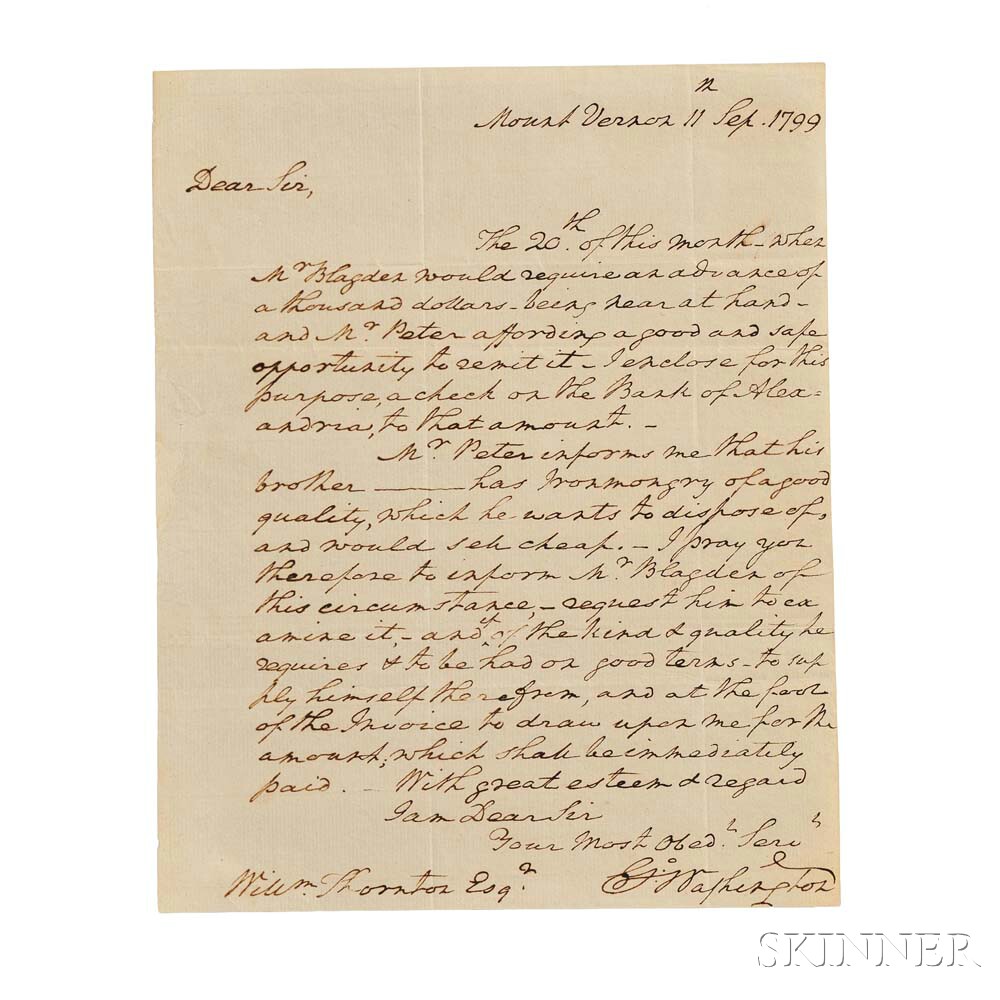 Mount Vernon 11th Sep. 1799
Dear Sir,
The 20th. of this month - when
Mr Blagden would require an advance of
a thousand dollars - being near at hand -
and Mr. Peter affording a good and safe
opportunity to remit it - I enclose for this
purpose, a check on the Bank of Alex=
andria, to that amount. -
Mr. Peter informs me that his
brother ——— has Ironmongry of a good
quality, which he wants to dispose of,
and would sell cheap. - I pray you
therefore to inform Mr. Blagden of
this circumstance, - request him to ex
amine it, - and if of the kind & quality he
requires & to be had on good terms - to sup
ply himself therefrom, and at the foot
of the Invoice to draw upon me for the
amount; which shall be immediately
paid. - With great esteem & regard
I am Dear Sir
Your Most Obedt. Servt
Go: Washington
Willm. Thornton Esqr.
SKINNER